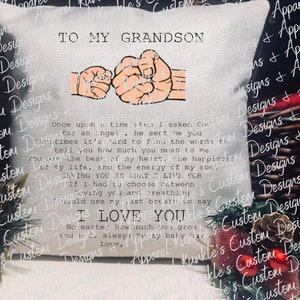 TO MY GRANDSON
Once upon a time when I asked God
for an angel, he sent me you
Sometimes it's hard to find the words to
tell you how much you mean to me
You are the best of my heart, the happiness
of my life, and the energy of my soul
LOVING YOU IS WHAT I LIVE FOR
If I had to choose between
loving you and breathing
I would use my last breath to say
I LOVE YOU
No matter how much you grow
You will always be my baby boy
Love,
Kunkle's Custom Designs & Apparel